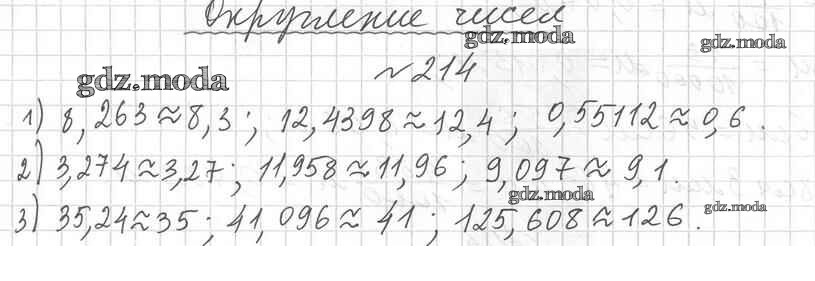 Округление чисел
gdz.moda
gdz.moda
~ 214
gdz.moda
1) 8,263≈8,3; 12,4398≈12,4; 0,55112≈0,6.
2) 3,274≈3,27; 11,958≈11,96; 9,097≈9,1.
gdz.moda
gdz.moda
3) 35,24≈35; 41,096≈41; 125,608≈126.